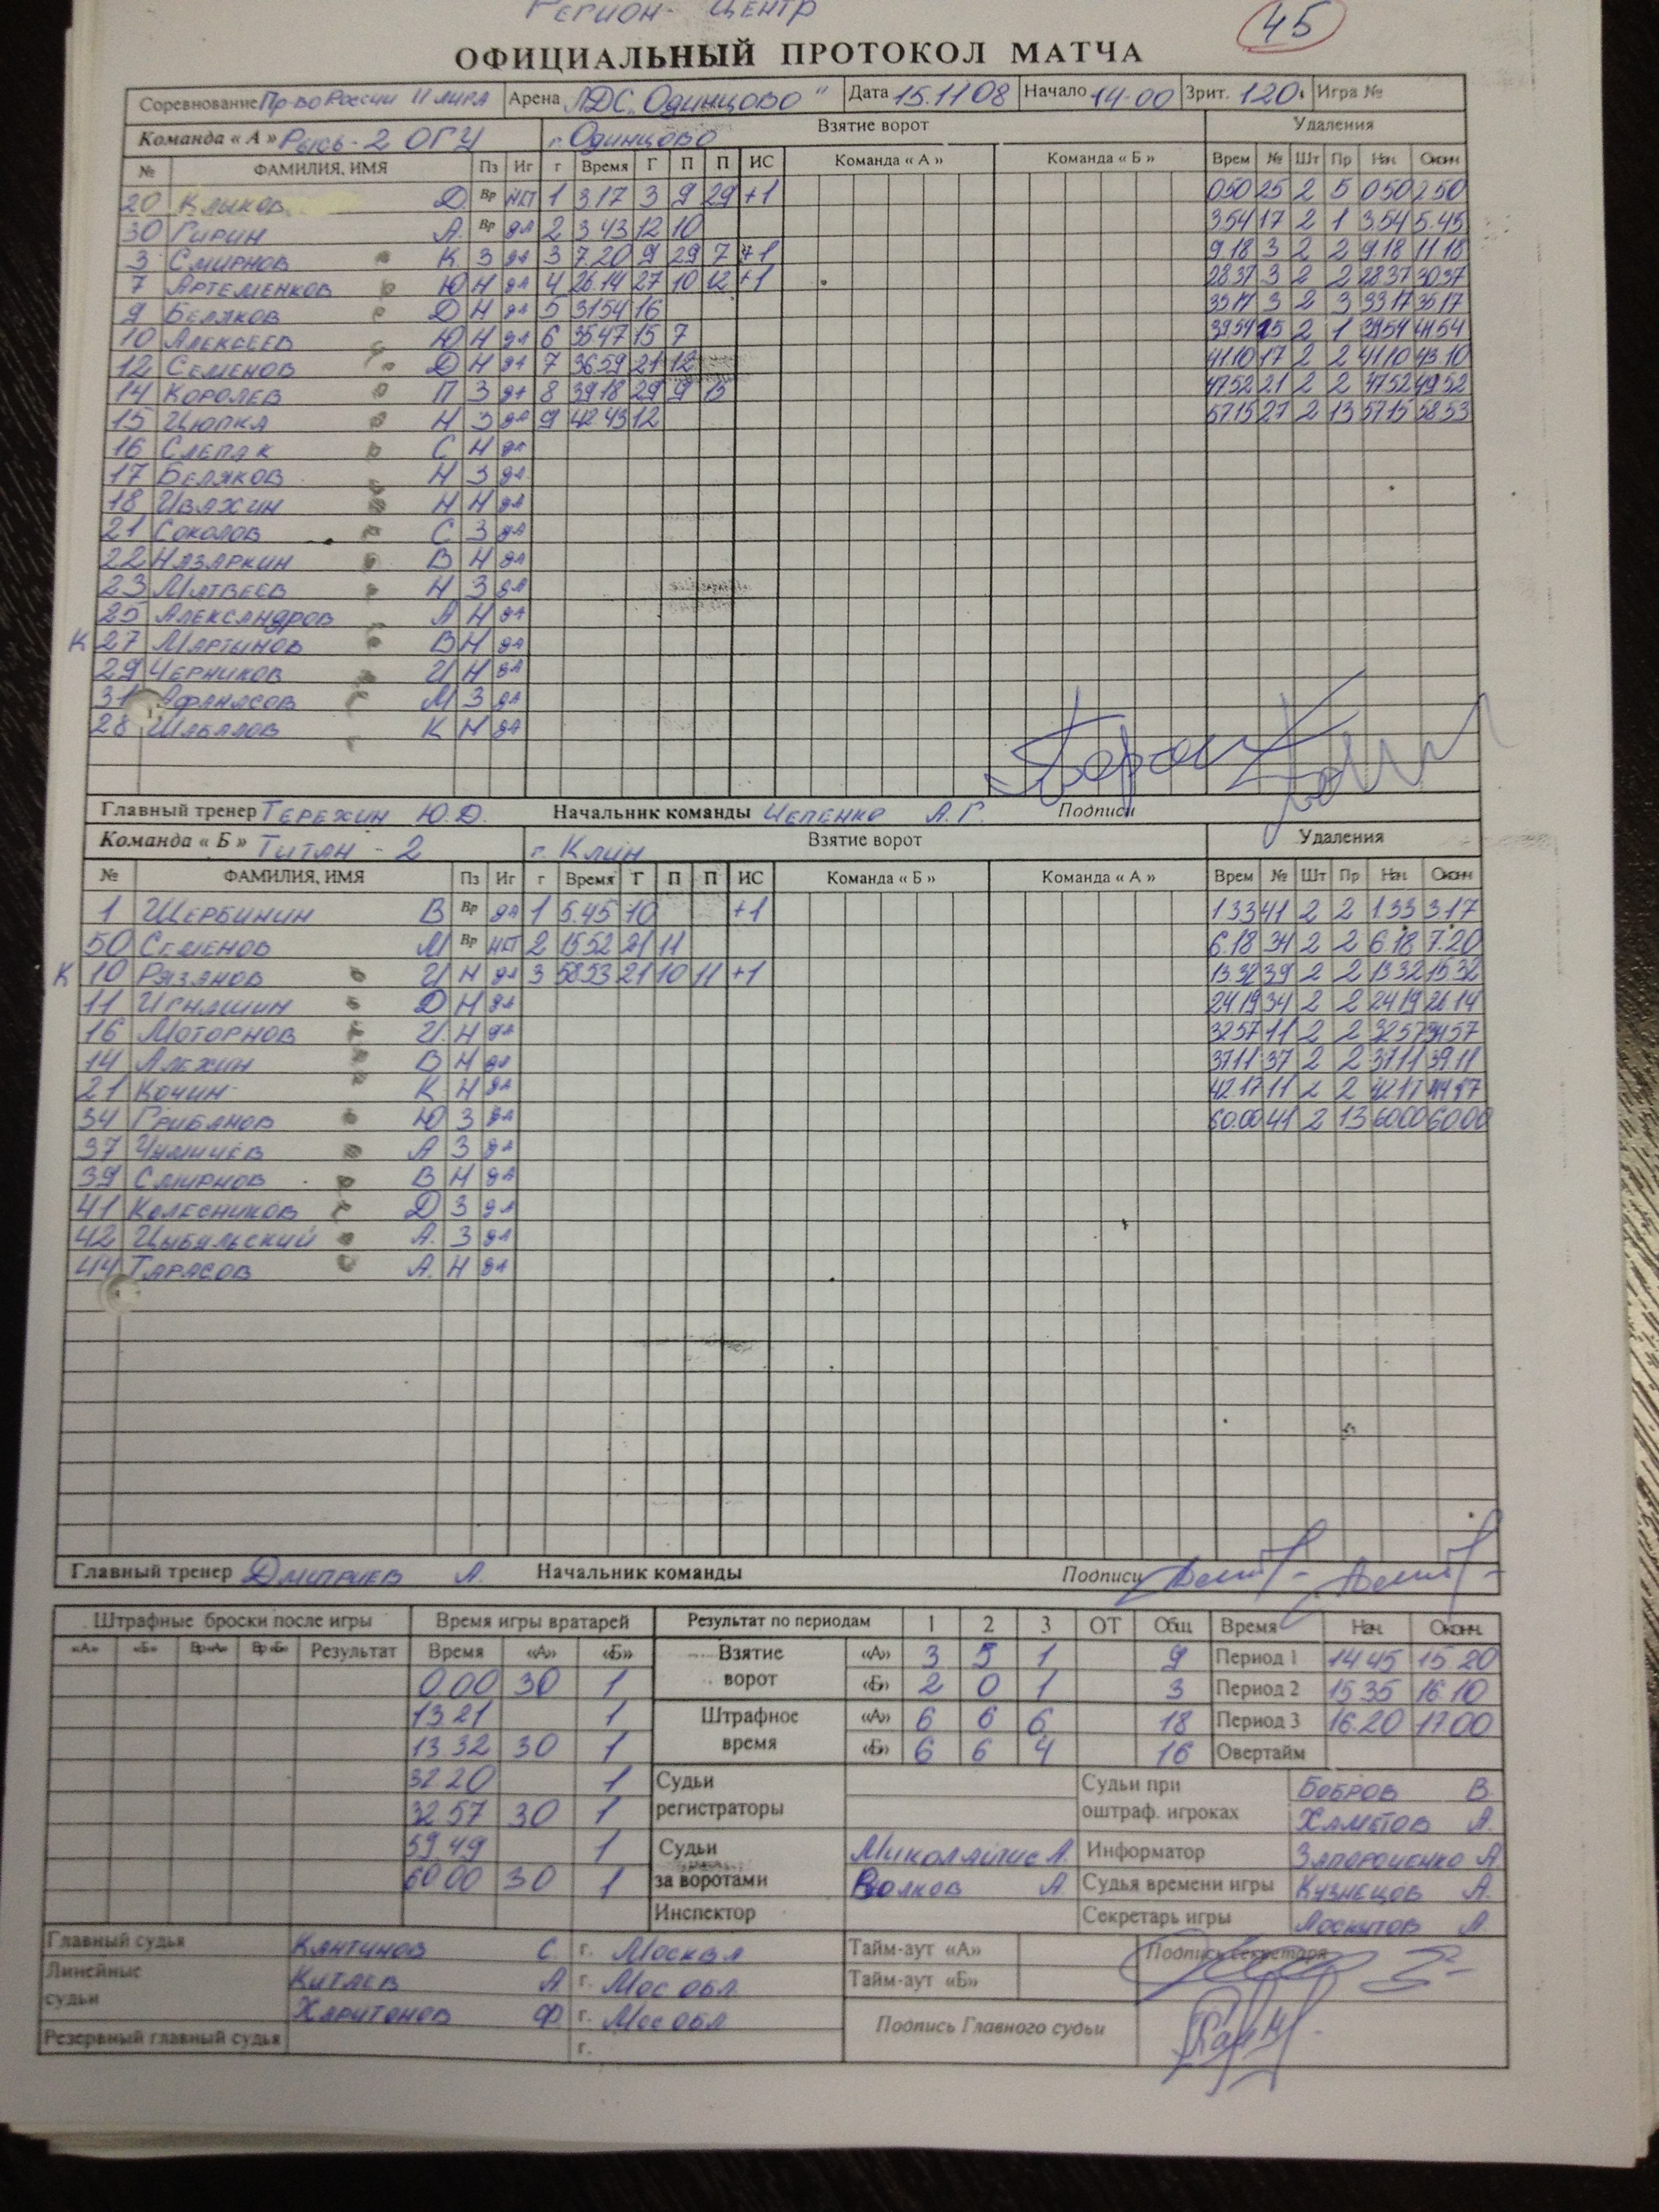 Регион- Центр
45
ОФИЦИАЛЬНЫЙ ПРОТОКОЛ МАТЧА
Соревнование Пр-во России II лига Арена ЛДС "Одинцово" Дата 15.11 08 Начало 14-00 Зрит. 120 Игра №
Команда « А » Рысь-2 ОГУ г. Одинцово Взятие ворот Удаления
№ ФАМИЛИЯ, ИМЯ Пз Иг г Время Г П П ИС Команда « А » Команда « Б » Врем № Шт Пр Нач. Оконч
20 Клыков Д. Вр НП 1 3.17 3 9 29 +1 0.50 25 2 5 0.50 2.50
30 Гирин А. Вр да 2 3 43 12 10 3.54 17 2 1 3.54 5.45
3 Смирнов К З да 3 7.20 9 29 7 +1 9.18 3 2 2 9.18 11.18
7 Артеменков Ю Н да 4 26.14 27 10 12 +1 28 37 3 2 2 28 37 30 37
9 Беляков Д Н да 5 31 54 16 33 17 3 2 3 33 17 35 17
10 Алексеев Ю Н да 6 35.47 15 7 39 54 25 2 1 39 54 41 54
12 Семенов Д Н да 7 36 59 21 12 41 10 17 2 2 41 10 43 10
14 Королев П З да 8 39 18 29 9 15 47 52 21 2 2 47 52 49 52
15 Цюпка Н З да 9 42 43 12 57.15 27 2 13 57 15 58 53
16 Слепак С Н да
17 Беляков Н З да
18 Ивахин Н Н да
21 Соколов С З да
22 Назаркин В Н да
23 Матвеев Н З да
25 Александров А Н да
К 27 Мартынов В Н да
29 Черников И Н да
31 Афанасов М З да
28 Шабалов К Н да
Главный тренер Терехин Ю.Д. Начальник команды Цепенко А.Г. Подписи
Команда « Б » Титан - 2 г. Клин Взятие ворот Удаления
№ ФАМИЛИЯ, ИМЯ Пз Иг г Время Г П П ИС Команда « Б » Команда « А » Врем № Шт Пр Нач. Оконч
1 Щербинин В Вр да 1 5.45 10 +1 1.33 41 2 2 1.33 3.17
50 Семенов М Вр НП 2 15 52 21 11 6.18 34 2 2 6.18 7.20
К 10 Рязанов И Н да 3 58 53 21 10 11 +1 13 32 39 2 2 13 32 15 32
11 Игнашин Д Н да 24 19 34 2 2 24 19 26 14
16 Моторнов И. Н да 32 57 11 2 2 32 57 34 57
14 Алехин В Н да 37 11 37 2 2 37 11 39 11
21 Кочин К Н да 42.17 11 2 2 42 17
34 Грибанов Ю З да 60.00 41 2 13 60 00 60 00
37 Чумичев А З да
39 Смирнов В Н да
41 Колесников Д З да
42 Цыбульский А. З да
44 Тарасов А. Н да
Главный тренер Дмитриев А. Начальник команды Подписи
Штрафные броски после игры Время игры вратарей Результат по периодам 1 2 3 ОТ Общ Время Нач. Оконч.
«А» «Б» Вр«А» Вр«Б» Результат Время «А» «Б» Взятие ворот «А» 3 5 1 9 Период 1 14 45 15 20
0.00 30 1 «Б» 2 0 1 3 Период 2 15 35 16 10
13 21 1 Штрафное время «А» 6 6 6 18 Период 3 16.20 17 00
13 32 30 1 «Б» 6 6 4 16 Овертайм
32 20 1 Судьи регистраторы Судьи при оштраф. игроках Бобров В.
32 57 30 1 Хаметов А.
59 49 1 Судьи за воротами А. Информатор Запорощенко А
60 00 30 1 Волков А Судья времени игры Кузнецов А.
Инспектор Секретарь игры Лоскутов А.
Главный судья Кантинов С. г. Москва Тайм-аут «А» Подпись секретаря
Линейные судьи Китаев А г. Мос обл Тайм-аут «Б»
Харитонов Ф г. Мос обл Подпись Главного судьи
Резервный главный судья г.